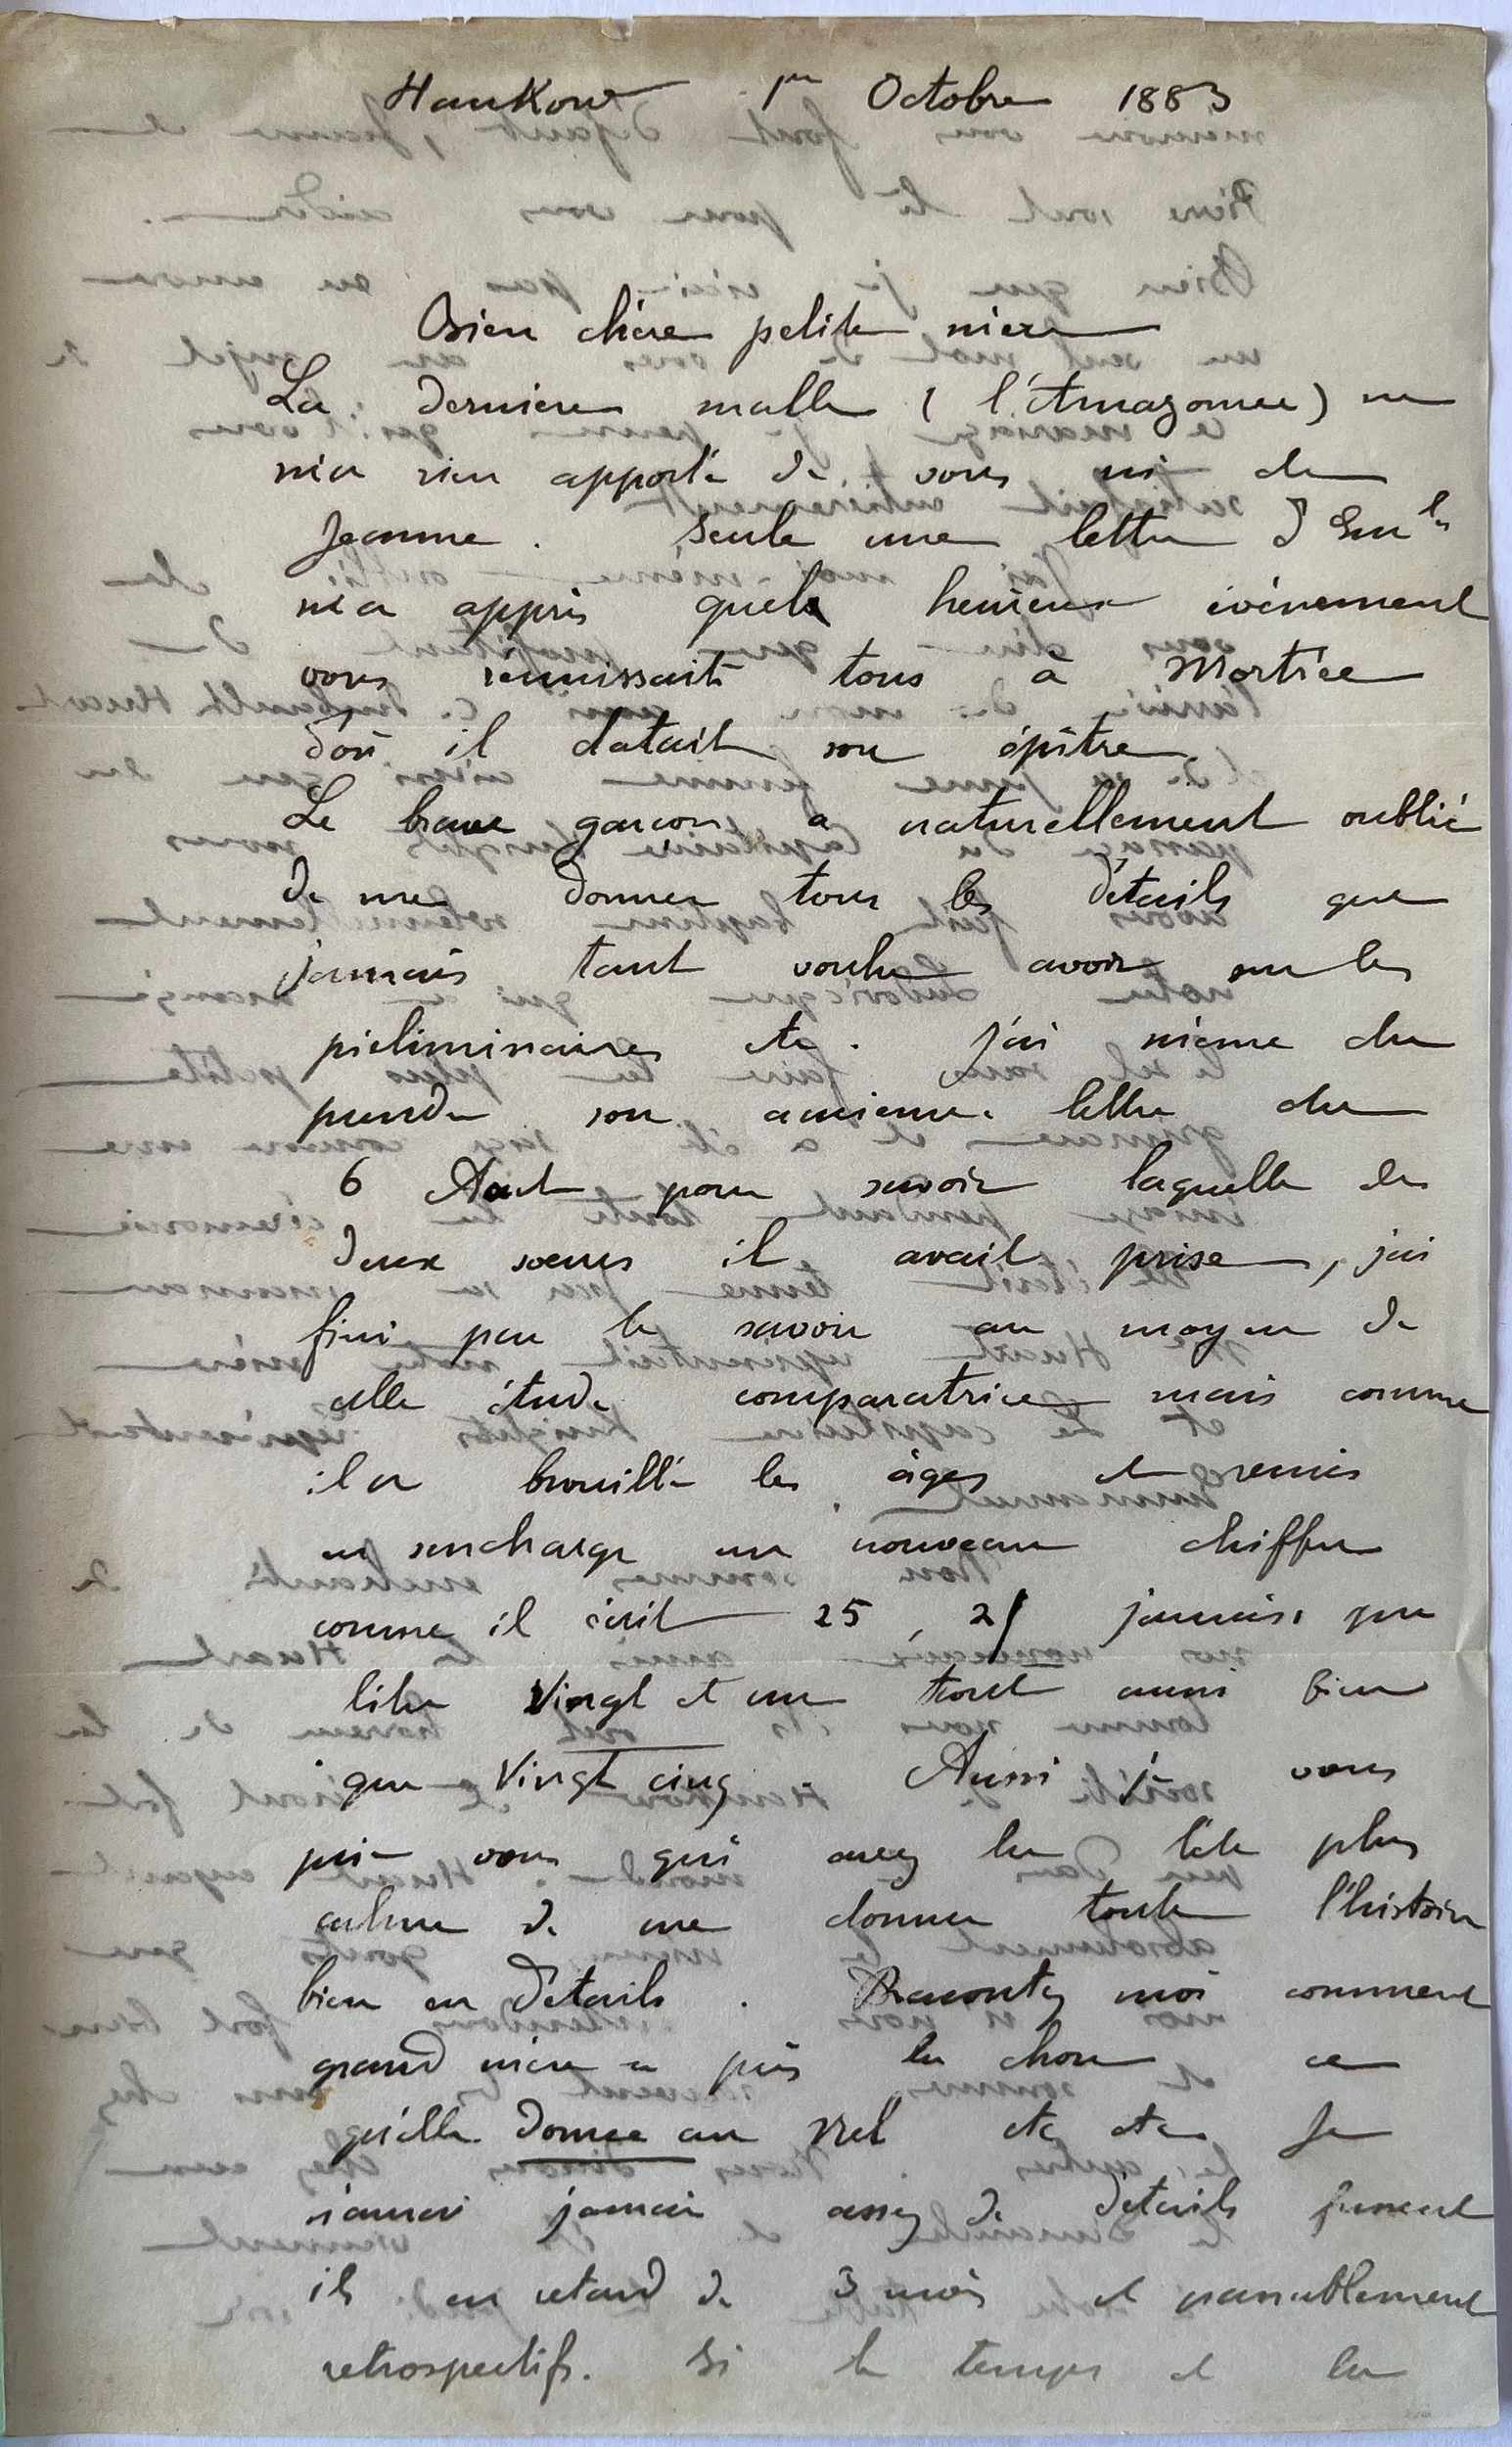 Hankow 1er Octobre 1883
Bien chère petite mère
La dernière malle (l'Amazone) ne
m'a rien apporté de vous ni de
Jeanne. Seule une lettre d'Em
m'a appris quel heureux évènement
vous réunissait tous à Mortrée
d'où il datait son épitre.
Le brave garçon a naturellement oublié
de me donner tous les détails que
j'aurais tant voulu avoir sur les
préliminaires etc. J'ai même du
prendre son ancienne lettre du
6 Aout pour savoir laquelle des
deux soeurs il avait prise, j'ai
fini par le savoir au moyen de
cette étude comparatrice mais comme
il a brouillé les âges et remis
en surcharge un nouveau chiffre
comme il écrit 25, 21 j'aurais pu
lire vingt et un tout aussi bien
que vingt cinq. Aussi je vous
prie vous qui avez la tête plus
calme de me donner toute l'histoire
bien en détails. Racontez moi comment
grand mère a pris la chose ce
qu'elle donne au etc etc Je
n'aurai jamais assez de détails fussent
ils en retard de 3 mois et passablement
retrospectifs. Si le temps et la